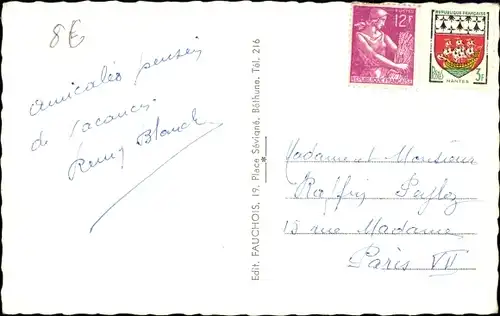 8€
Amicales pensées
de vacances
Remy Blanch
Edit. FAUCHOIS, 19, Place Sévigné, Béthune. Tél. 216
POSTES
12F
REPUBLIQUE FRANÇAISE
REPUBLIQUE FRANÇAISE
POSTES
3F
NANTES
Madame et Monsieur
15 rue Madame
Paris VII